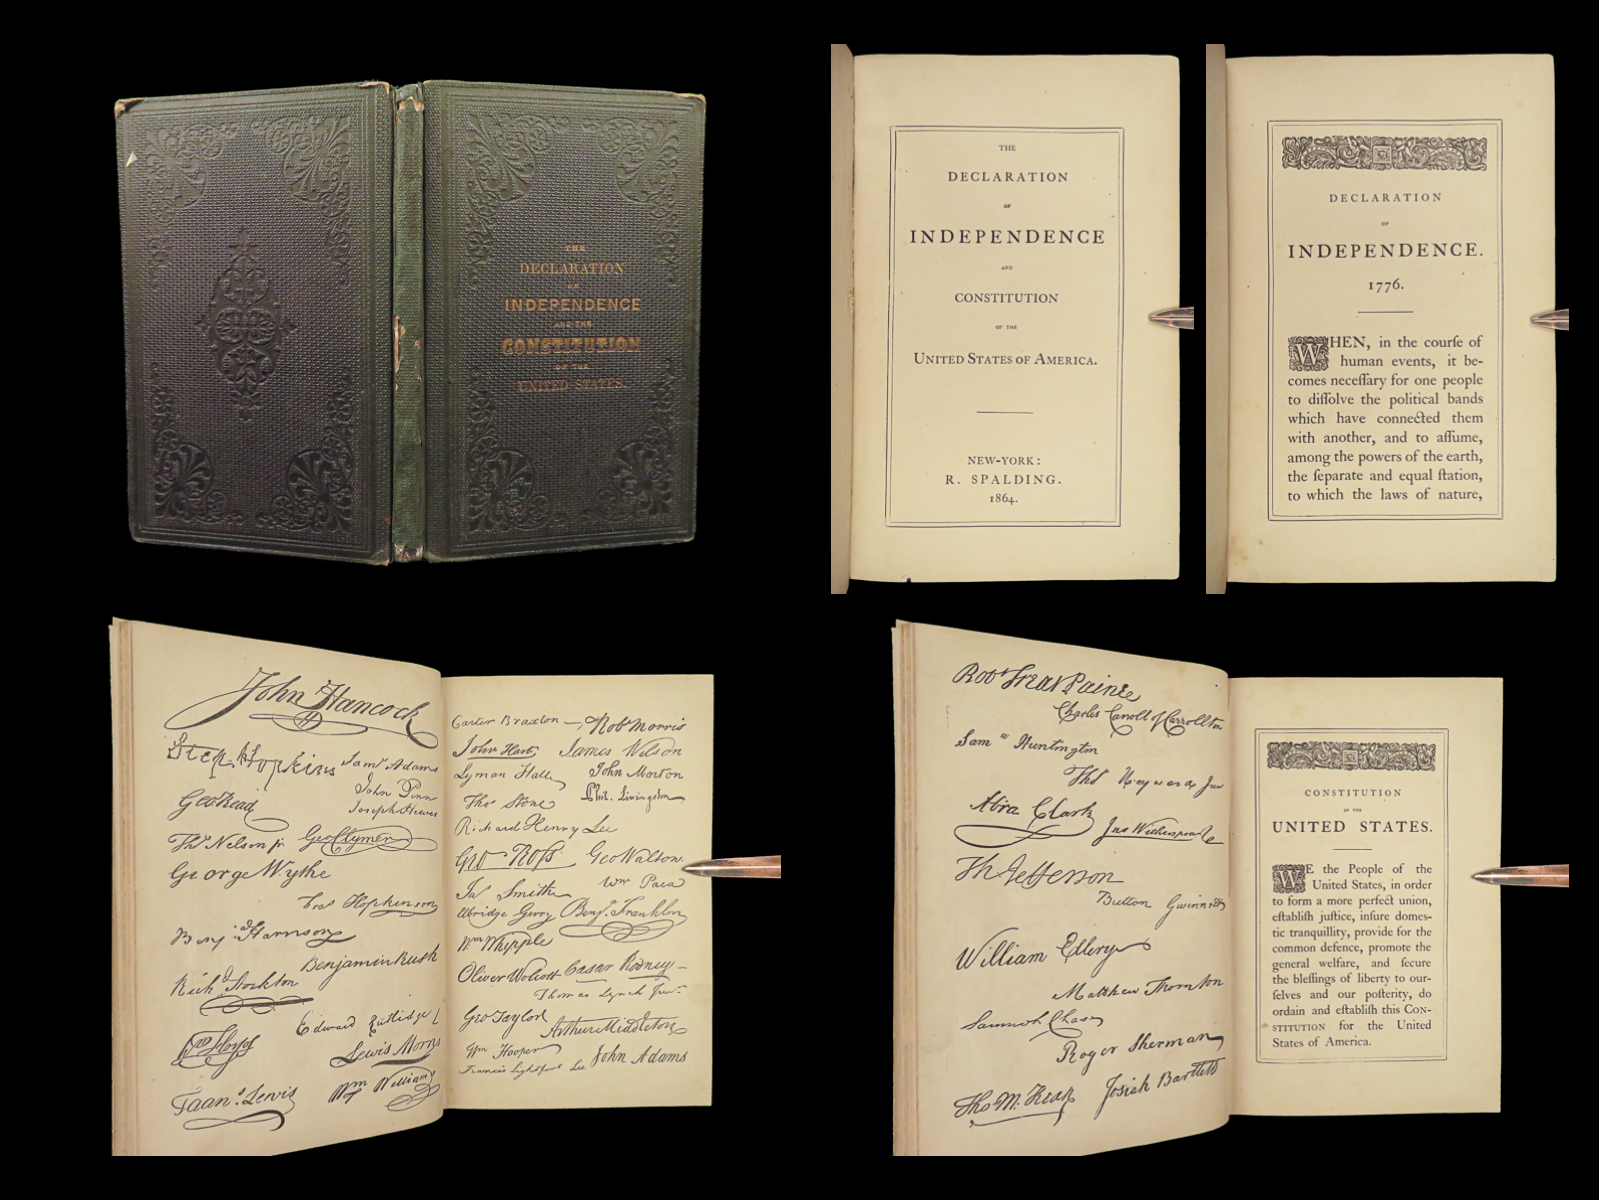 THE
DECLARATION
OF
INDEPENDENCE
AND THE
CONSTITUTION
OF THE
UNITED STATES.
THE
DECLARATION
OF
INDEPENDENCE
AND
CONSTITUTION
OF THE
UNITED STATES OF AMERICA.
NEW-YORK:
R. SPALDING.
1864.
DECLARATION
OF
INDEPENDENCE.
1776.
WHEN, in the courſe of
human events, it be-
comes neceſſary for one people
to diſſolve the political bands
which have connected them
with another, and to aſſume,
among the powers of the earth,
the ſeparate and equal ſtation,
to which the laws of nature,
John Hancock
Step. Hopkins Saml Adams
John Penn
Geo Read Joseph Hewes
Thos Nelson jr. Geo Clymer
George Wythe
Fras Hopkinson
Benj. Harrison
Benjamin Rush
Richd Stockton
Edward Rutledge
Wm Floyd Lewis Morris
Wm Williams
Lewis
Carter Braxton Robt Morris
John Hart James Wilson
Lyman Hall John Morton
Thos Stone Phil. Livingston
Richard Henry Lee
Geo. Roſs Geo Walton
Jas Smith Wm Paca
Elbridge Gerry Benj. Franklin
Wm Whipple
Oliver Wolcott Caesar Rodney
Thomas Lynch Junr
Geo Taylor Arthur Middleton
Wm Hooper
Francis Lightfoot Lee John Adams
Robt Treat Paine
Charles Carroll of Carrollton
Saml Huntington
Thos Heyward Junr
Abra Clark Jno Witherspoon
Th Jefferson
Button Gwinnett
William Ellery
Matthew Thornton
Samuel Chase
Roger Sherman
Tho M. Kean Josiah Bartlett
CONSTITUTION
OF THE
UNITED STATES.
WE the People of the
United States, in order
to form a more perfect union,
eſtabliſh juſtice, inſure domeſ-
tic tranquillity, provide for the
common defence, promote the
general welfare, and ſecure
the bleſſings of liberty to our-
ſelves and our poſterity, do
ordain and eſtabliſh this CON-
STITUTION for the United
States of America.